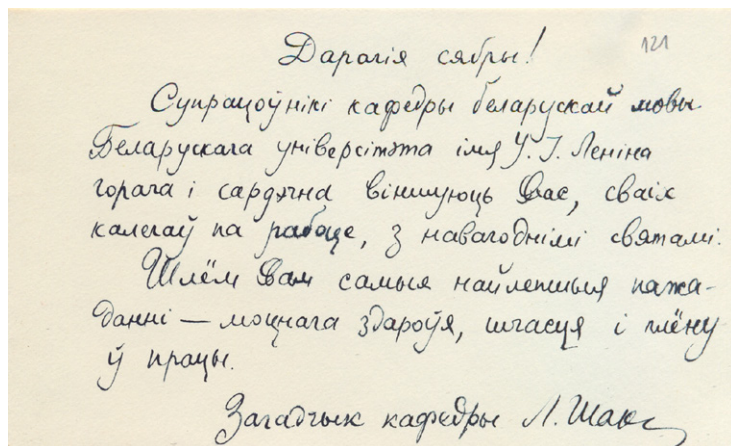 Дарагія сябры!
121
Супрацоўнікі кафедры беларускай мовы
Беларускага універсітэта імя У. І. Леніна
горача і сардэчна віншуюць Вас, сваіх
калегаў па рабоце, з навагоднімі святамі.
Шлём Вам самыя найлепшыя пажа-
данні — моцнага здароўя, шчасця і плёну
ў працы.
Загадчык кафедры Л.